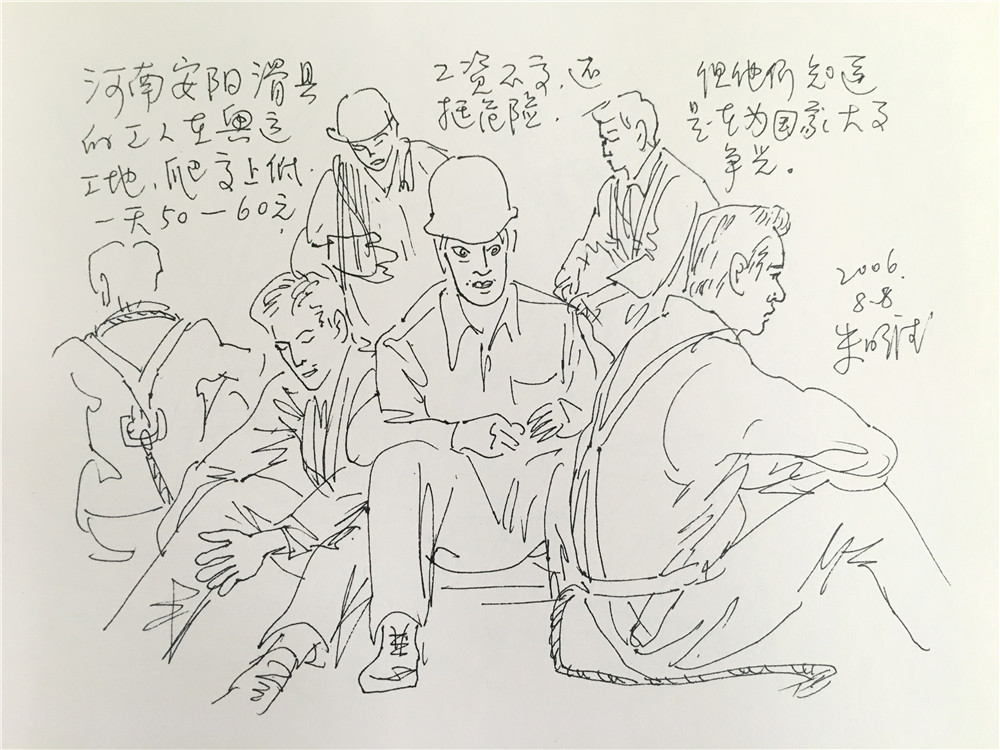 河南安阳滑县
的工人在奥运
工地,爬高上低.
一天50—60元,
工资不高,还
挺危险.
但他们知道
是在为国家大事
争光。
2006.
8.8
朱明